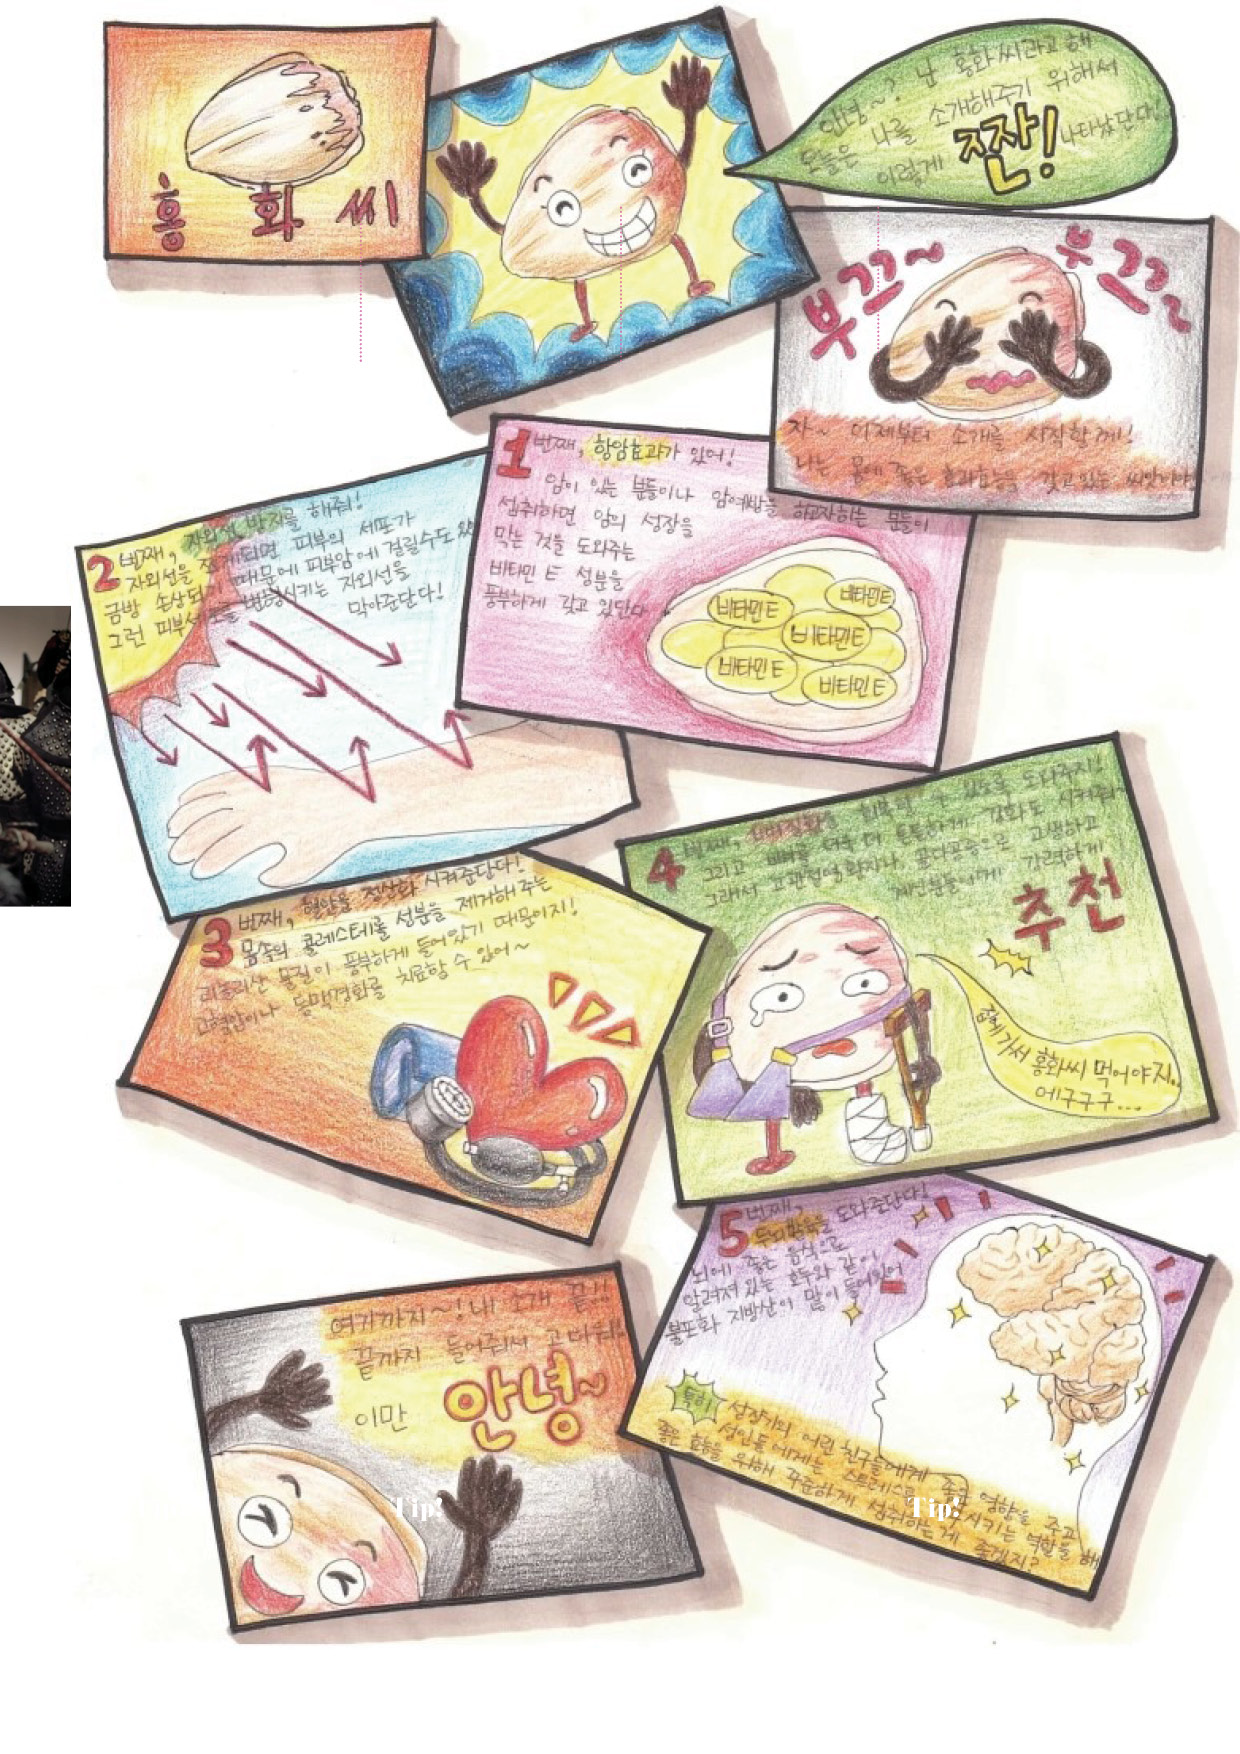 홍화씨
안녕~? 난 홍화씨라고 해
오늘은 나를 소개해주기 위해서
이렇게 짠! 나타났단다!
부끄~ 부끄~
자~ 이제부터 소개를 시작할께!
나는 몸에 좋은 효과효능을 갖고있는 씨앗이야
1번째, 항암효과가 있어!
암이 있는 분들이나 암예방을 하고자하는 분들이
섭취하면 암의 성장을
막는 것을 도와주는
비타민 E 성분을
풍부하게 갖고 있단다
비타민E
비타민E
비타민E
비타민E
비타민E
2번째, 자외선 방지를 해줘!
자외선을 쬐게되면 피부의 세포가
금방 손상되기 때문에 피부암에 걸릴수도
그런 피부세포를 변형시키는 자외선을
막아준단다!
3번째, 혈압을 정상화 시켜준단다!
몸속의 콜레스테롤 성분을 제거해 주는
리놀리산 물질이 풍부하게 들어있기 때문이지!
고혈압이나 동맥경화를 치료할 수 있어~
4번째, 회복할 수 있도록 도와주지!
그리고 뼈를 더욱 더 튼튼하게 강화도 시켜줘
그래서 고관절염환자나 골다공증으로 고생하고
계신분들에게 강력하게
추천
가서 홍화씨 먹어야지..
에구구구...
5번째,
두뇌발육을 도와준단다!
뇌에 좋은 음식으로
알려져 있는 호두와 같이
불포화 지방산이 많이 들어있어
특히! 성장기의 어린 친구들에게 좋은 영향을 주고
성인들에게는 스트레스를 시키는 역할을 해
좋은 효능을 위해 꾸준하게 섭취하는게 좋겠지?
Tip!
여기까지~! 내 소개 끝!!
끝까지 들어줘서 고마워!
이만 안녕~
Tip!